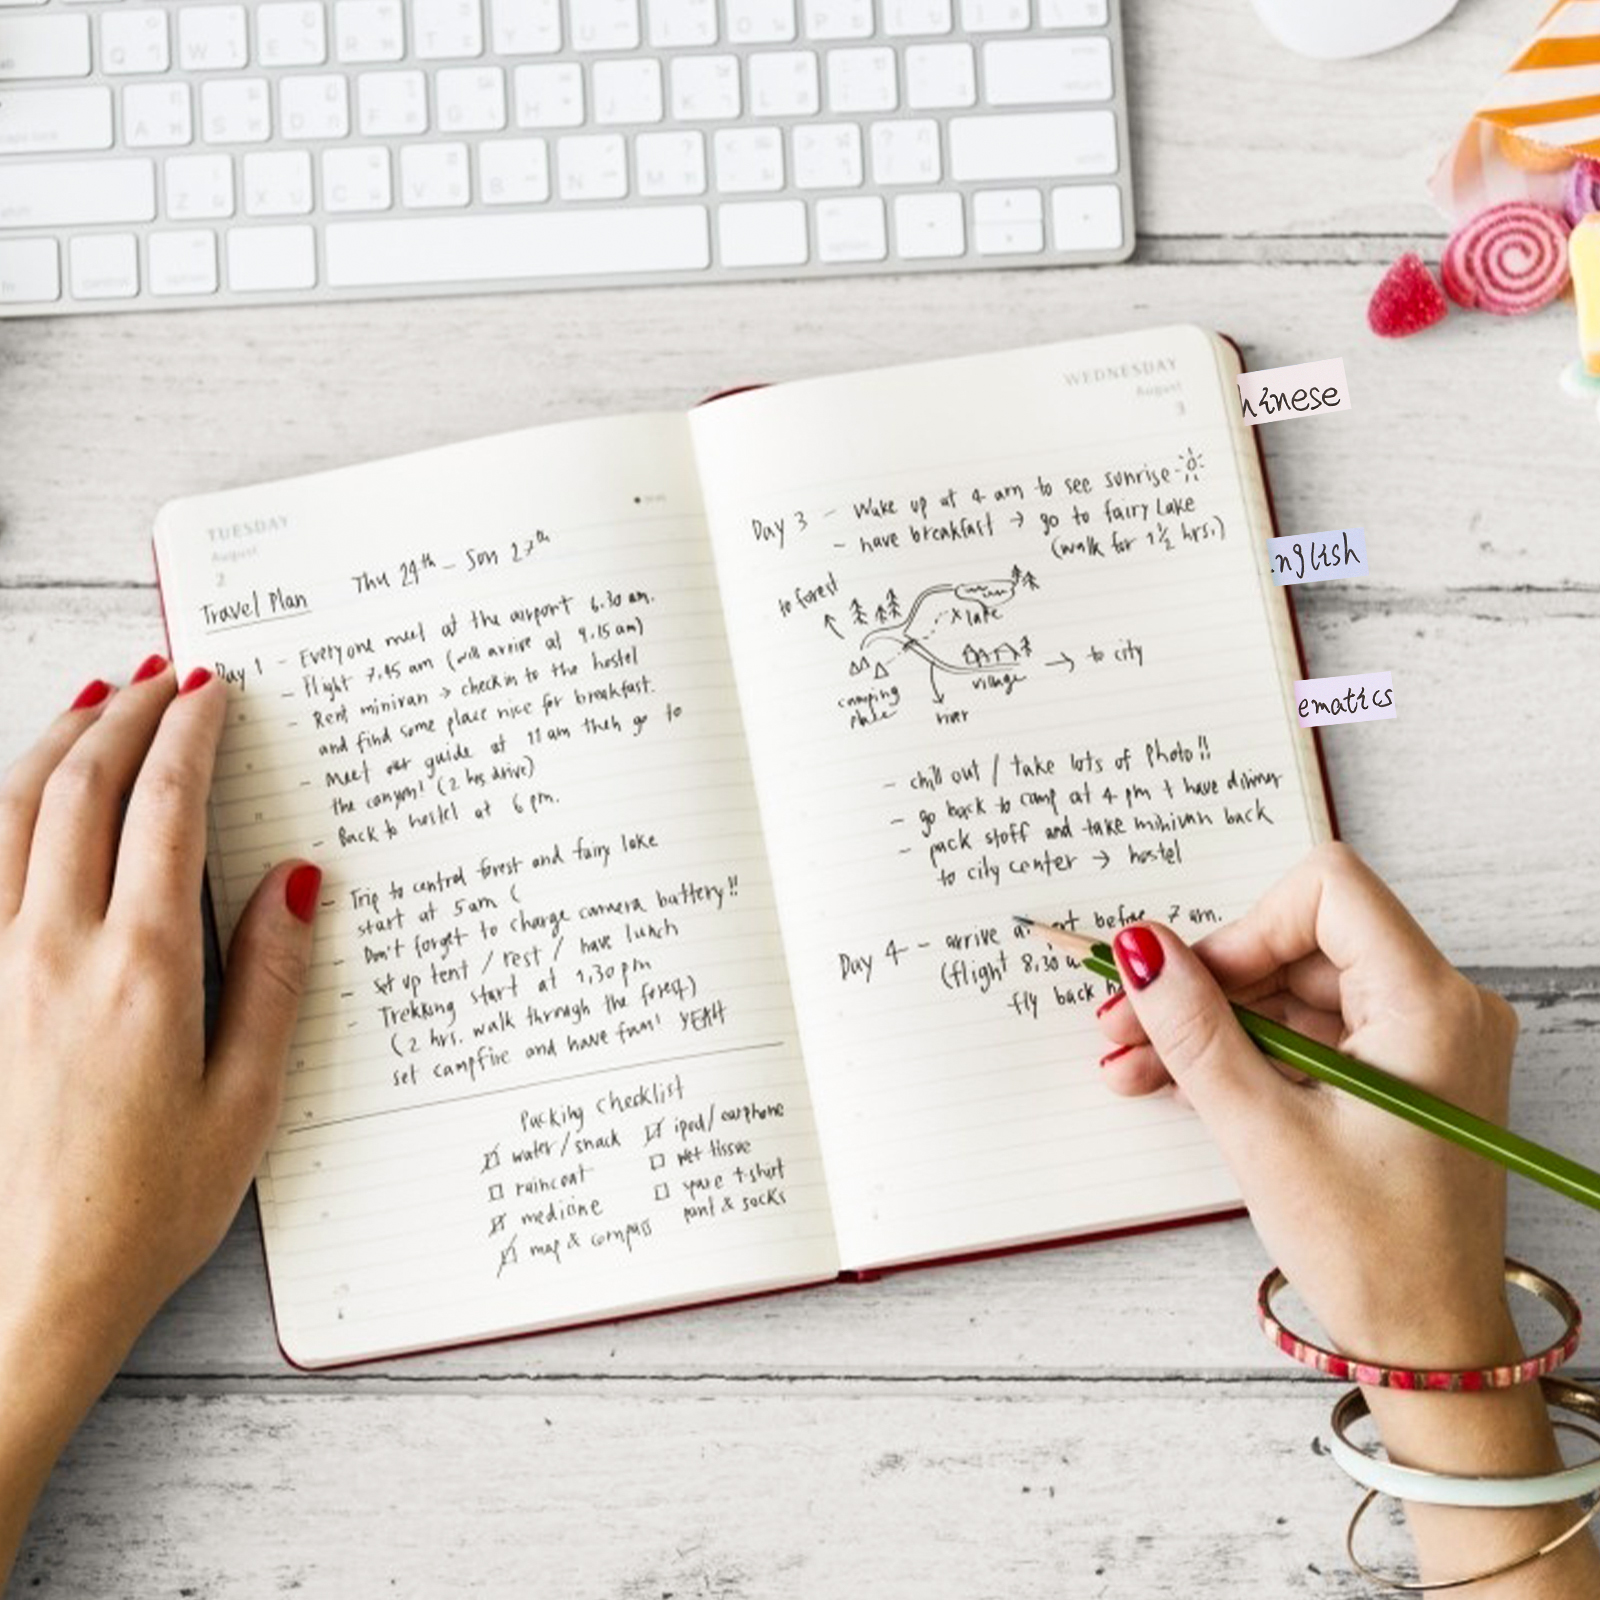 TUESDAY
August
2
Travel Plan
Thu 24th - Sun 27th
Day 1 - Everyone meet at the airport 6.30 am.
- Flight 7.45 am (will arrive at 9.15 am)
- Rent minivan → check in to the hostel
and find some place nice for breakfast.
- Meet our guide at 11 am then go to
the canyon! (2 hrs drive)
- Back to hostel at 6 pm.
- Trip to central forest and fairy lake
start at 5am (
- Don't forget to charge camera battery!!
- set up tent / rest / have lunch
- Trekking start at 1,30 pm
(2 hrs. walk through the forest)
set campfire and have fun! YEAH
Packing checklist
water/snack
raincoat
medicine
map & compass
ipod/earphone
wet tissue
spare t-shirt
pant & socks
WEDNESDAY
August
3
Day 3 - Wake up at 4 am to see sunrise
- have breakfast → go to fairy Lake
(walk for 1½ hrs.)
to forest
x lake
camping
place
village
→ to city
river
- chill out / take lots of photo!!
- go back to camp at 4 pm + have dinner
- pack stuff and take minivan back
to city center → hostel
Day 4 - arrive before 7 am.
(flight 8,30
fly back
hinese
nglish
ematics